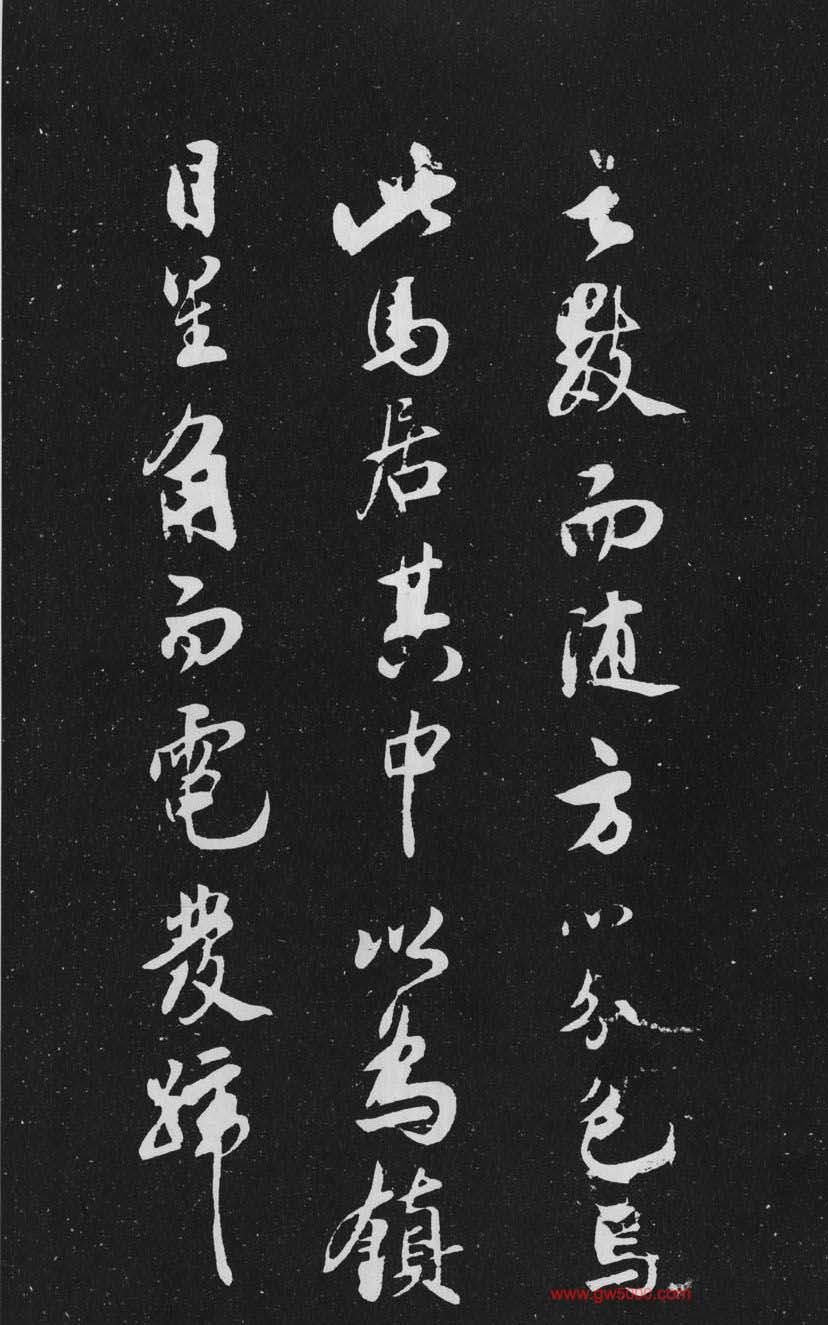 之數而随方以分色焉
此馬居其中以為鎮
目星角而電發蹄
www.gw5000.com